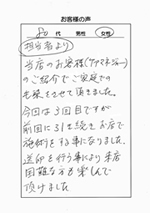 お客様の声
80代 男性 女性
担当者より
当店のお客様(ケアマネジャー)
のご紹介でご家庭での
施術をさせて頂きました。
今回は3回目ですが
前回に引き続きお店で
施術を行う事になりました。
送迎を行う事により来店
困難な方も楽しんで
頂けました。